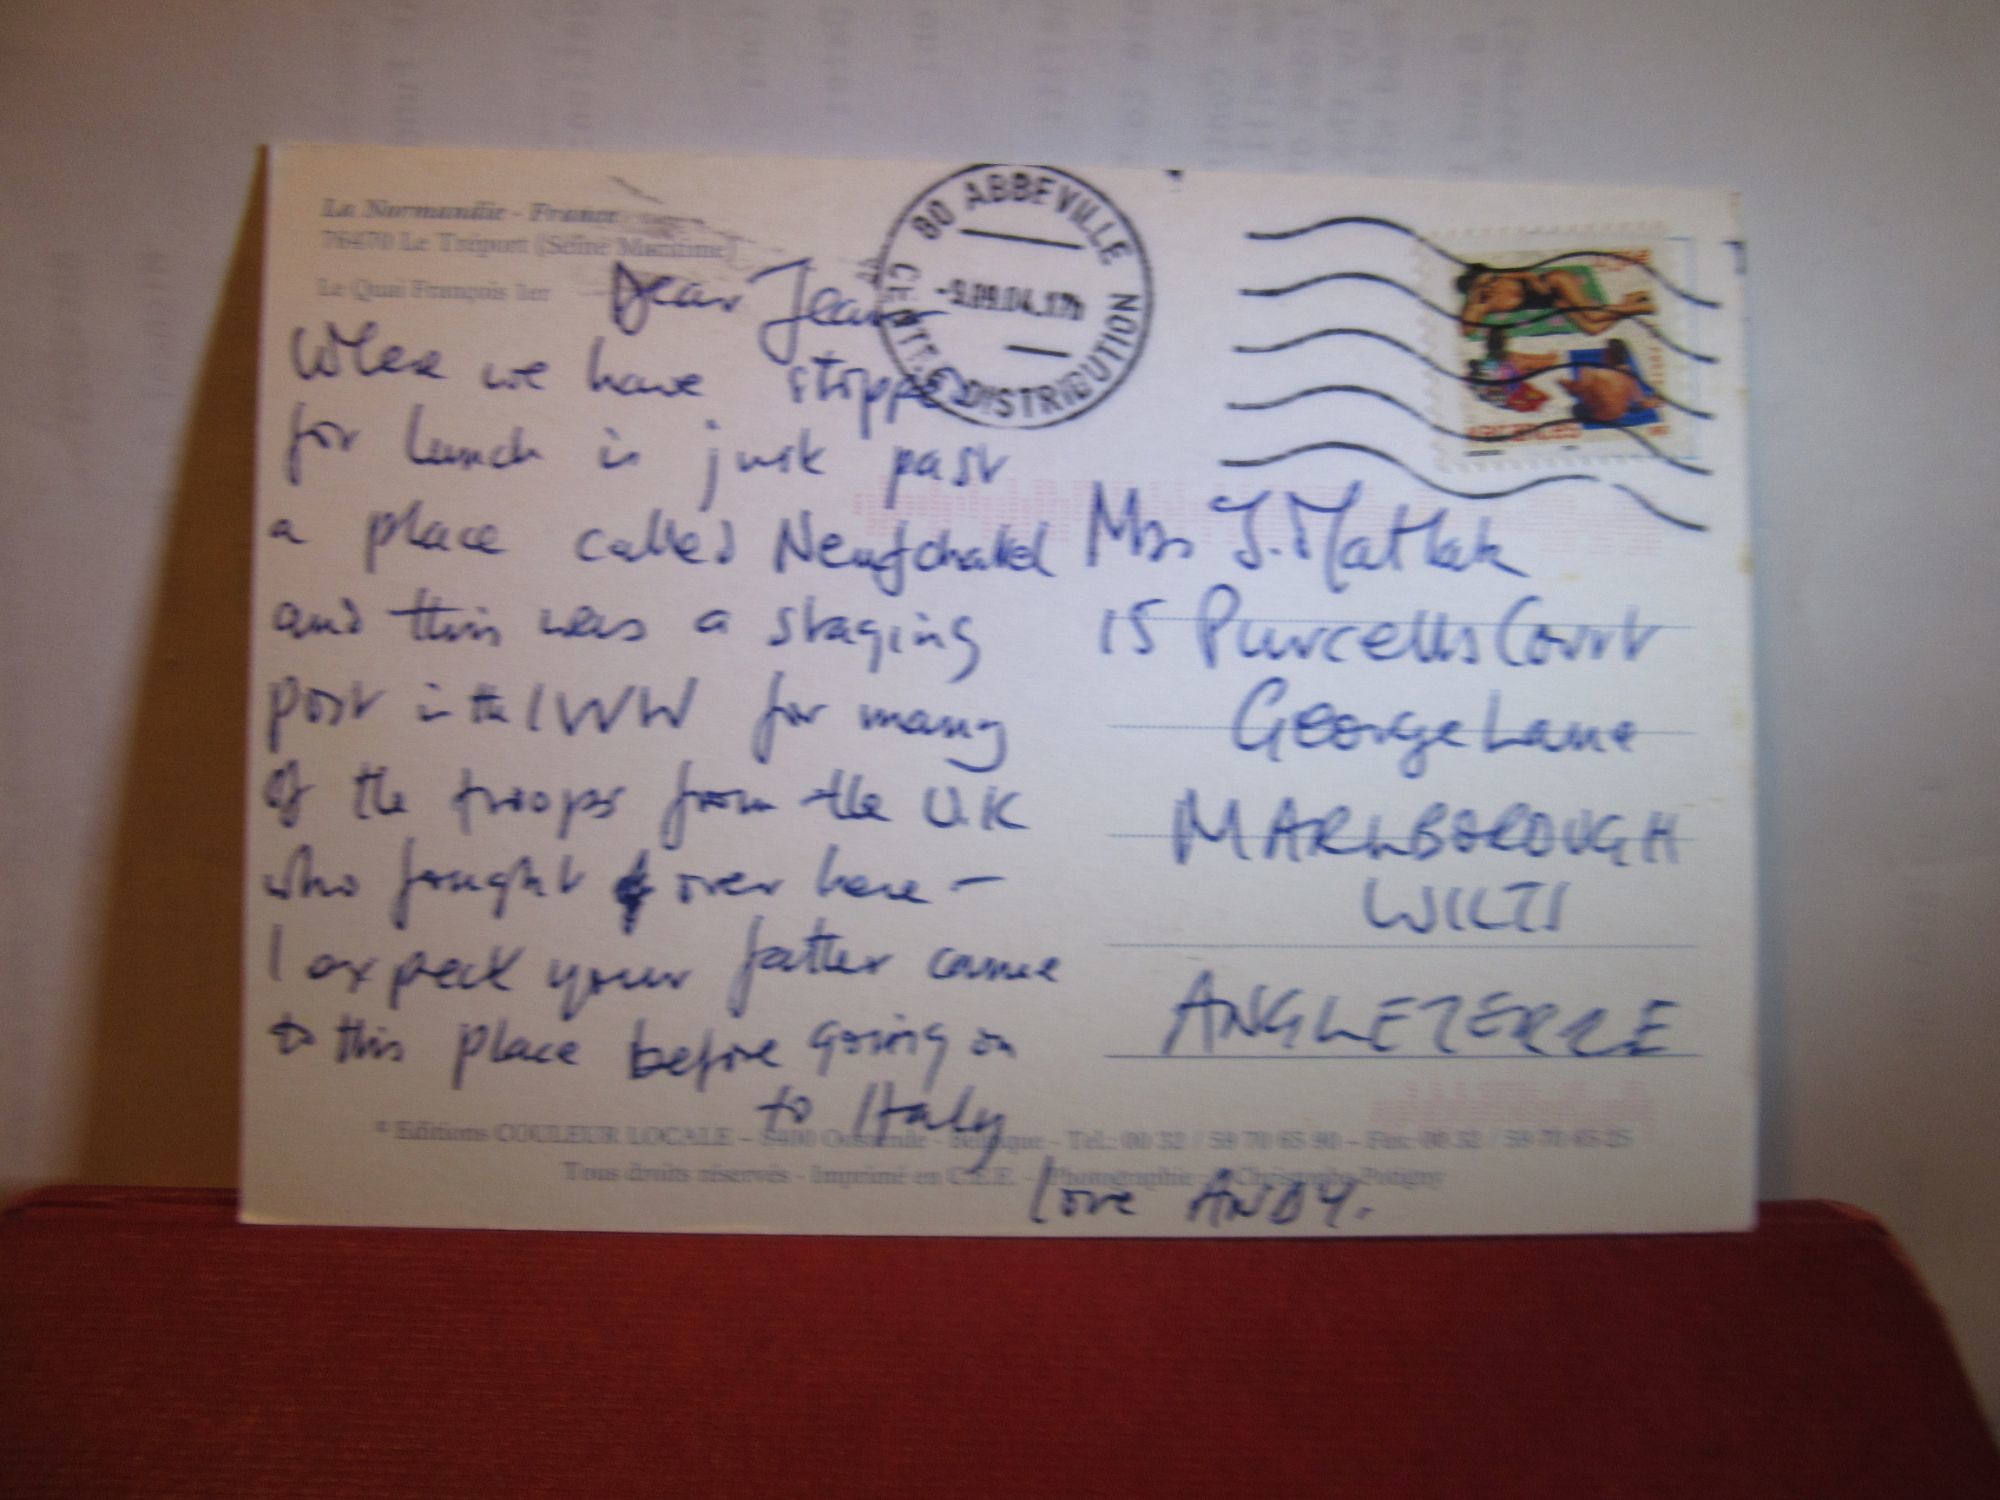 La Normandie - France
76470 Le Tréport (Seine Maritime)
Le Quai François 1er
80 ABBEVILLE
-9.09.04.17h
CENTRE DISTRIBUTION
Dear Jean
Where we have stopped
for lunch is just past
a place called Neufchatel
and this was a staging
post in the 1WW for many
of the troops from the UK
who fought over here —
I expect your father came
to this place before going on
to Italy
love ANDY.
Mrs J. Matlak
15 Purcells Court
George Lane
MARLBOROUGH
WILTS
ANGLETERRE
© Editions COULEUR LOCALE - 8400 Oostende - Belgique - Tél.: 00 32 / 59 70 65 90 - Fax: 00 32 / 59 70 65 25
Tous droits réservés - Imprimé en C.E.E. - Photographie : Christophe Potigny